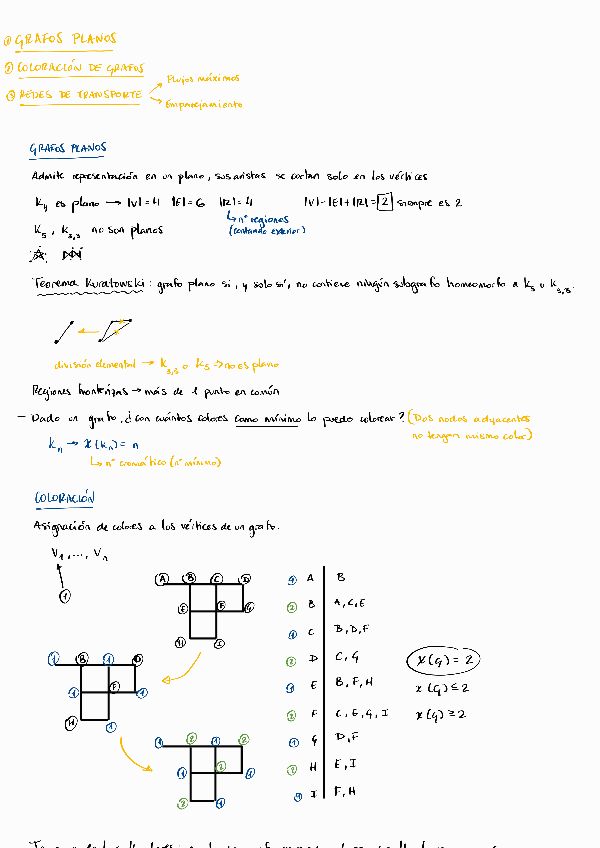 ① GRAFOS PLANOS
② COLORACIÓN DE GRAFOS
③ REDES DE TRANSPORTE
Flujos máximos
Emparejamiento
GRAFOS PLANOS
Admite representación en un plano, sus aristas se cortan solo en los vértices
K4 es plano → |V|=4 |E|=6 |R|=4 |V|-|E|+|R|=2 siempre es 2
↳ nº regiones
(contando exterior)
K5, K3,3 no son planos
Teorema Kuratowski: grafo plano si, y solo sí, no contiene ningún subgrafo homeomorfo a K5 o K3,3.
división elemental → K3,3 o K5 → no es plano
Regiones fronterizas → más de 1 punto en común
- Dado un grafo, ¿con cuántos colores como mínimo lo puedo colorear? (Dos nodos adyacentes
no tengan mismo color)
Kn → χ(Kn) = n
↳ nº cromático (nº mínimo)
COLORACIÓN
Asignación de colores a los vértices de un grafo.
V1, ..., Vn
①
A B C D
E F G
H I
① A B
② B A, C, E
① C B, D, F
② D C, G
① E B, F, H
② F C, E, G, I
① G D, F
② H E, I
① I F, H
χ(G) = 2
χ(G) ≤ 2
χ(G) ≥ 2
1 B 1 D
1 F 1
H 1
1 2 1 2
1 2 1
2 1